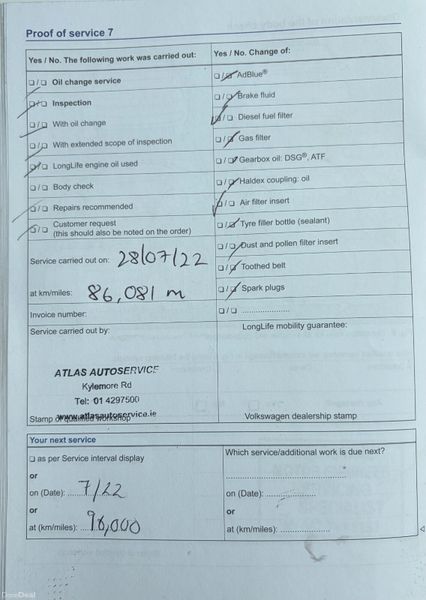 Proof of service 7
Yes / No. The following work was carried out:
❏ / ❏ Oil change service
❏ / ❏ Inspection
❏ / ❏ With oil change
❏ / ❏ With extended scope of inspection
❏ / ❏ LongLife engine oil used
❏ / ❏ Body check
❏ / ❏ Repairs recommended
❏ / ❏ Customer request
(this should also be noted on the order)
Service carried out on: 28/07/22
at km/miles: 86,081 m
Invoice number:
Service carried out by:
ATLAS AUTOSERVICE
Kylemore Rd
Tel: 01 4297500
www.atlasautoservice.ie
Stamp of qualified workshop
Yes / No. Change of:
❏ / ❏ AdBlue®
❏ / ❏ Brake fluid
❏ / ❏ Diesel fuel filter
❏ / ❏ Gas filter
❏ / ❏ Gearbox oil: DSG®, ATF
❏ / ❏ Haldex coupling: oil
❏ / ❏ Air filter insert
❏ / ❏ Tyre filler bottle (sealant)
❏ / ❏ Dust and pollen filter insert
❏ / ❏ Toothed belt
❏ / ❏ Spark plugs
❏ / ❏ ....................
LongLife mobility guarantee:
Volkswagen dealership stamp
Your next service
❏ as per Service interval display
or
on (Date): 7/22
or
at (km/miles): 96,000
Which service/additional work is due next?
on (Date): ....................
or
at (km/miles): ....................
DoneDeal